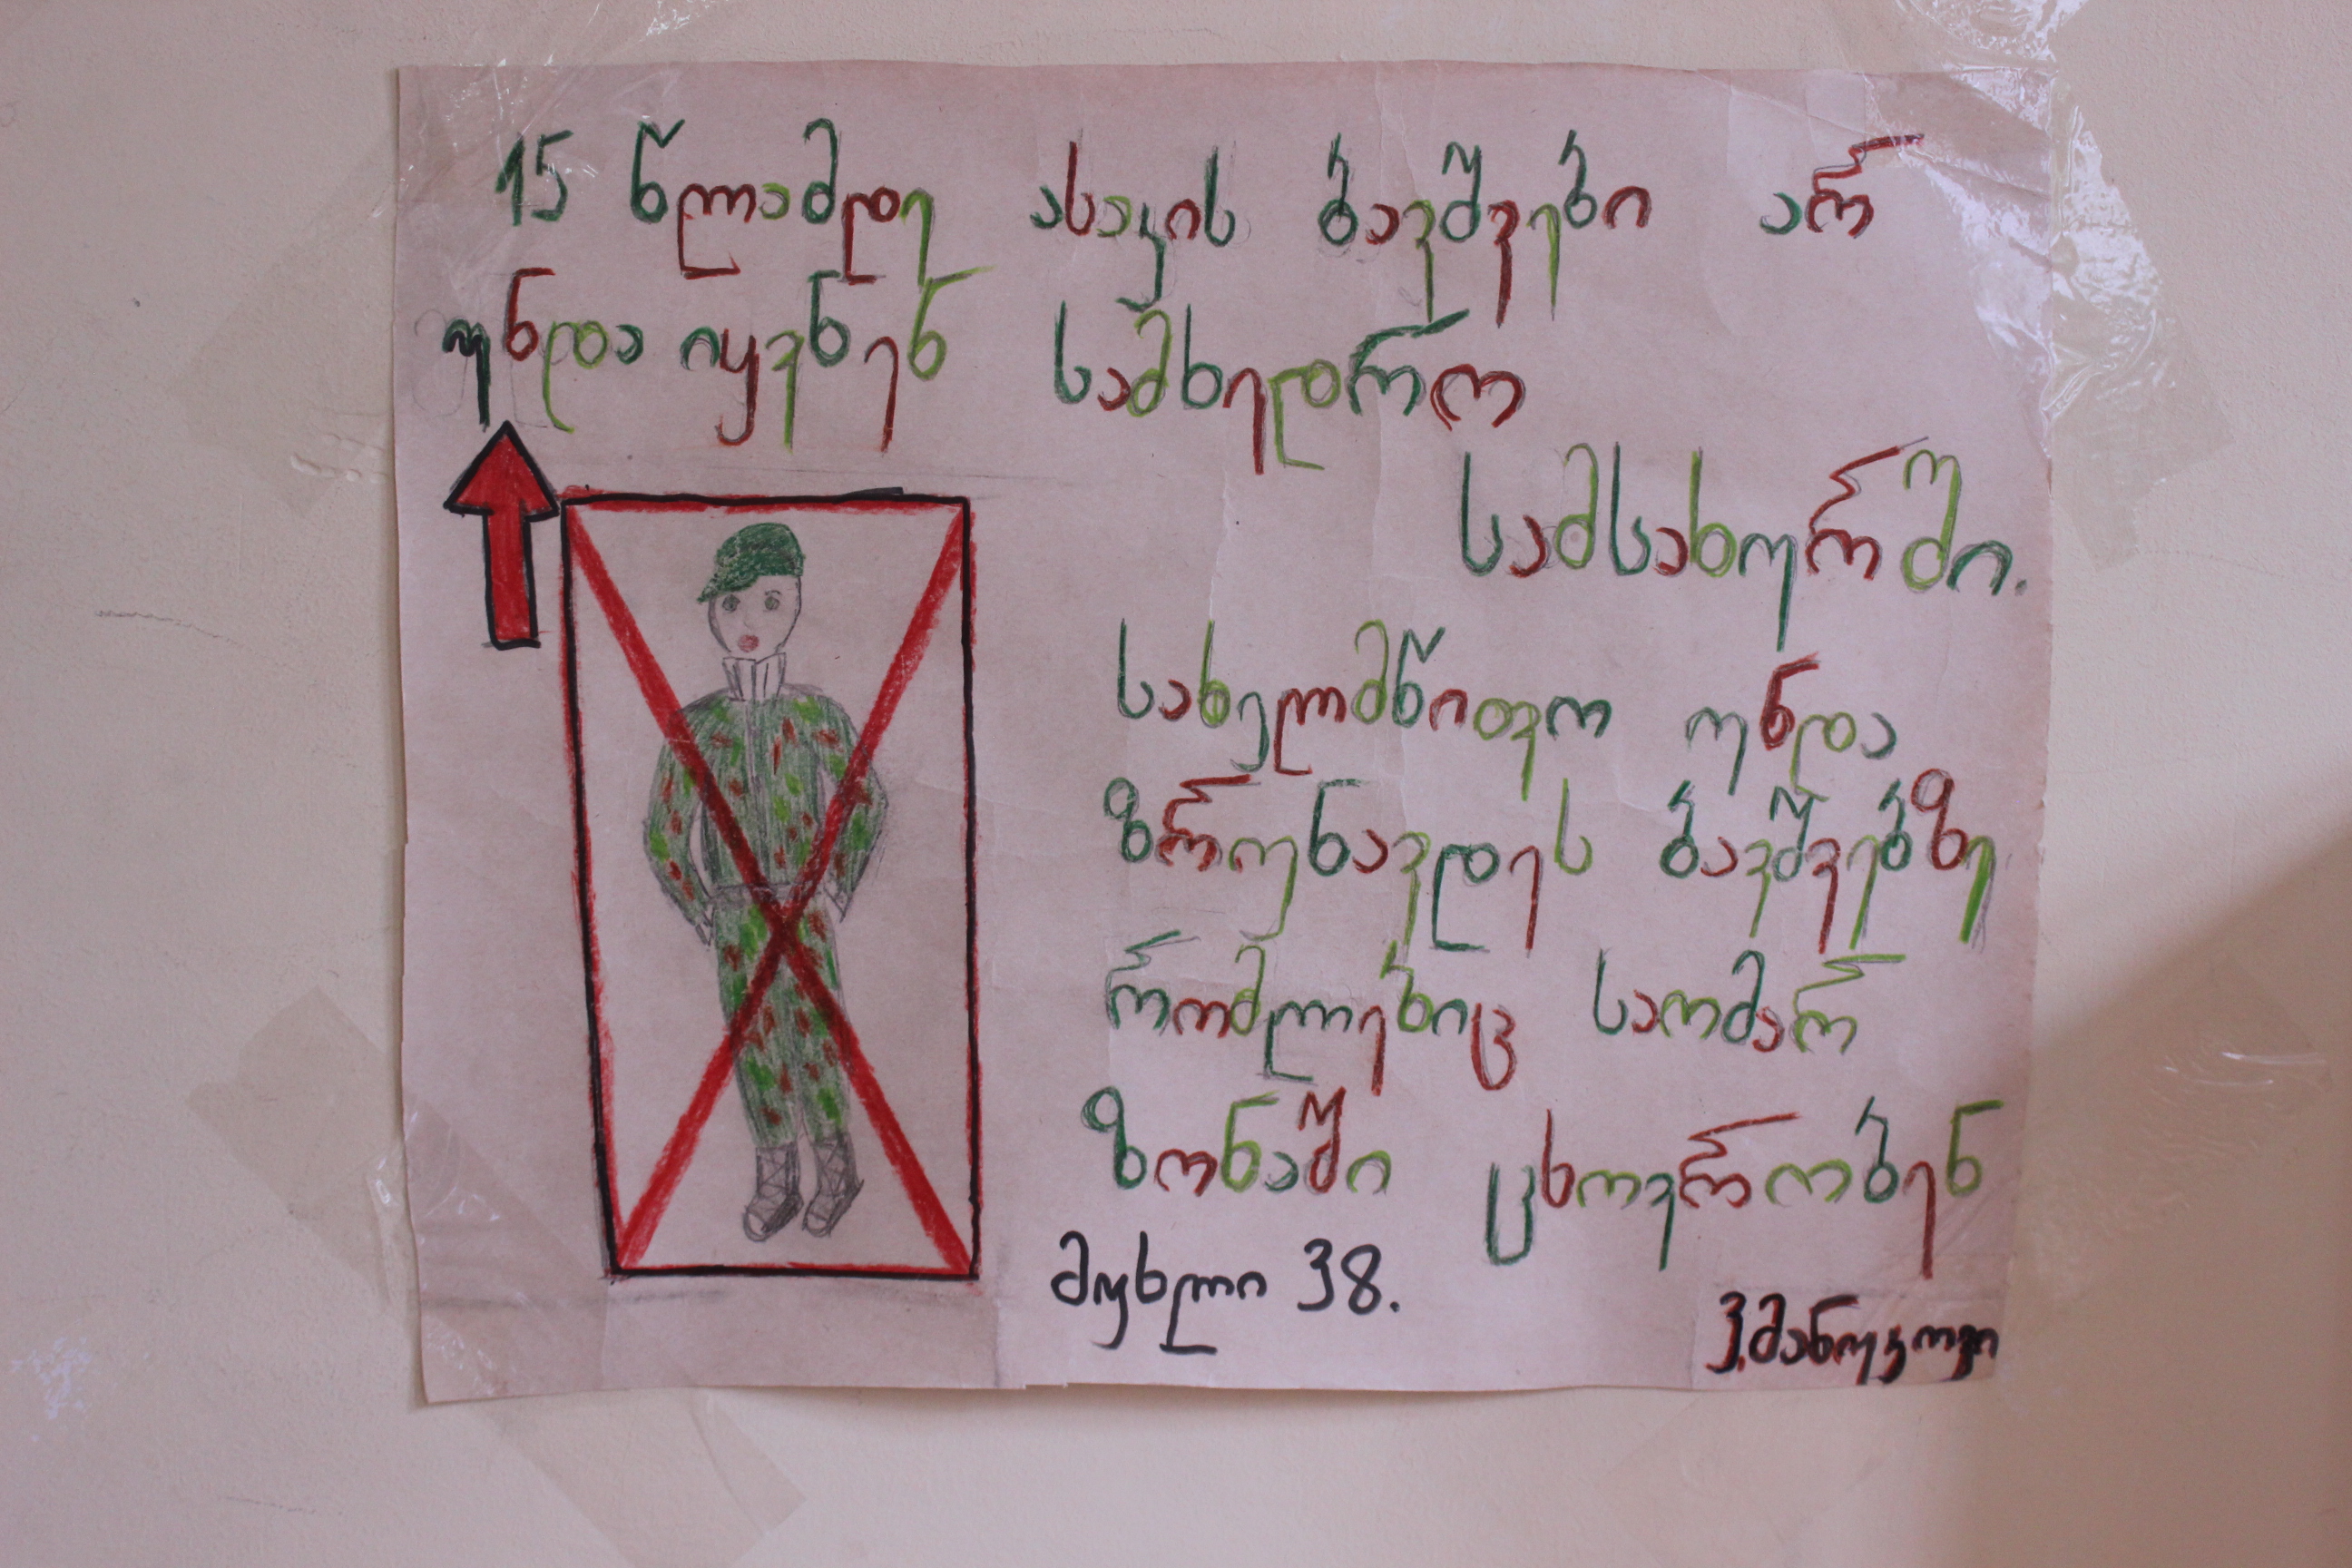 15 წლამდე ასაკის ბავშვები არ
უნდა იყვნენ სამხედრო
სამსახურში.
სახელმწიფო უნდა
ზრუნავდეს ბავშვებზე
რომლებიც საომარ
ზონაში ცხოვრობენ
მუხლი 38.
ვ.მანუკოვი